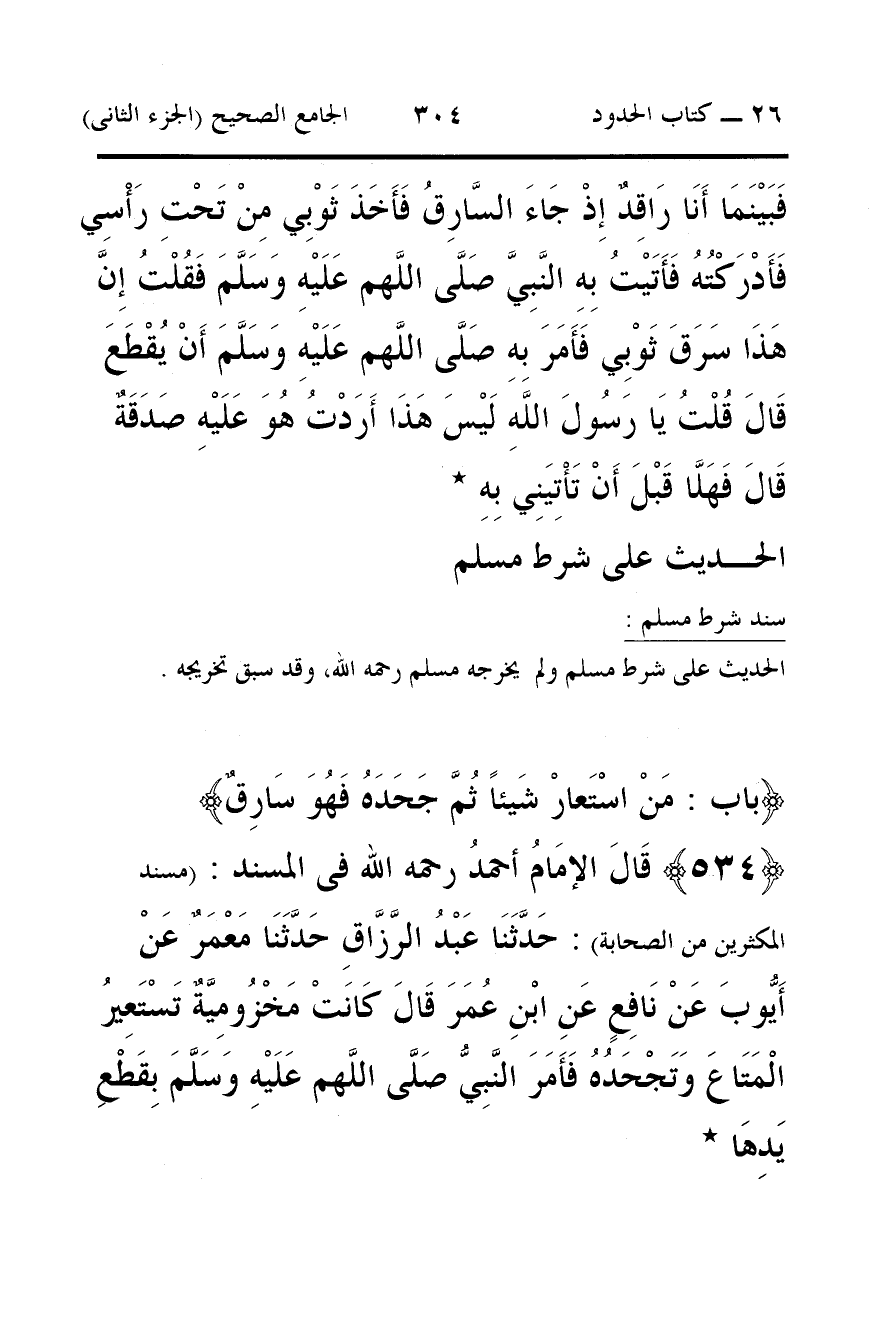 ٢٦ ـ كتاب الحدود ٣٠٤ الجامع الصحيح (الجزء الثانى)
فَبَيْنَمَا أَنَا رَاقِدٌ إِذْ جَاءَ السَّارِقُ فَأَخَذَ ثَوْبِي مِنْ تَحْتِ رَأْسِي
فَأَدْرَكْتُهُ فَأَتَيْتُ بِهِ النَّبِيَّ صَلَّى اللَّهم عَلَيْهِ وَسَلَّمَ فَقُلْتُ إِنَّ
هَذَا سَرَقَ ثَوْبِي فَأَمَرَ بِهِ صَلَّى اللَّهم عَلَيْهِ وَسَلَّمَ أَنْ يُقْطَعَ
قَالَ قُلْتُ يَا رَسُولَ اللَّهِ لَيْسَ هَذَا أَرَدْتُ هُوَ عَلَيْهِ صَدَقَةٌ
قَالَ فَهَلَّا قَبْلَ أَنْ تَأْتِيَنِي بِهِ *
الحـــديث على شرط مسلم
سند شرط مسلم :
الحديث على شرط مسلم ولم يخرجه مسلم رحمه الله، وقد سبق تخريجه .
﴿باب : مَنْ اسْتَعارْ شَيئاً ثُمَّ جَحَدَهُ فَهُوَ سَارِقٌ﴾
﴿٥٣٤﴾ قَالَ الإمَامُ أحمدُ رحمه الله فى المسند : (مسند
المكثرين من الصحابة) : حَدَّثَنَا عَبْدُ الرَّزَّاقِ حَدَّثَنَا مَعْمَرٌ عَنْ
أَيُّوبَ عَنْ نَافِعٍ عَنِ ابْنِ عُمَرَ قَالَ كَانَتْ مَخْزُومِيَّةٌ تَسْتَعِيرُ
الْمَتَاعَ وَتَجْحَدُهُ فَأَمَرَ النَّبِيُّ صَلَّى اللَّهم عَلَيْهِ وَسَلَّمَ بِقَطْعِ
يَدِهَا *